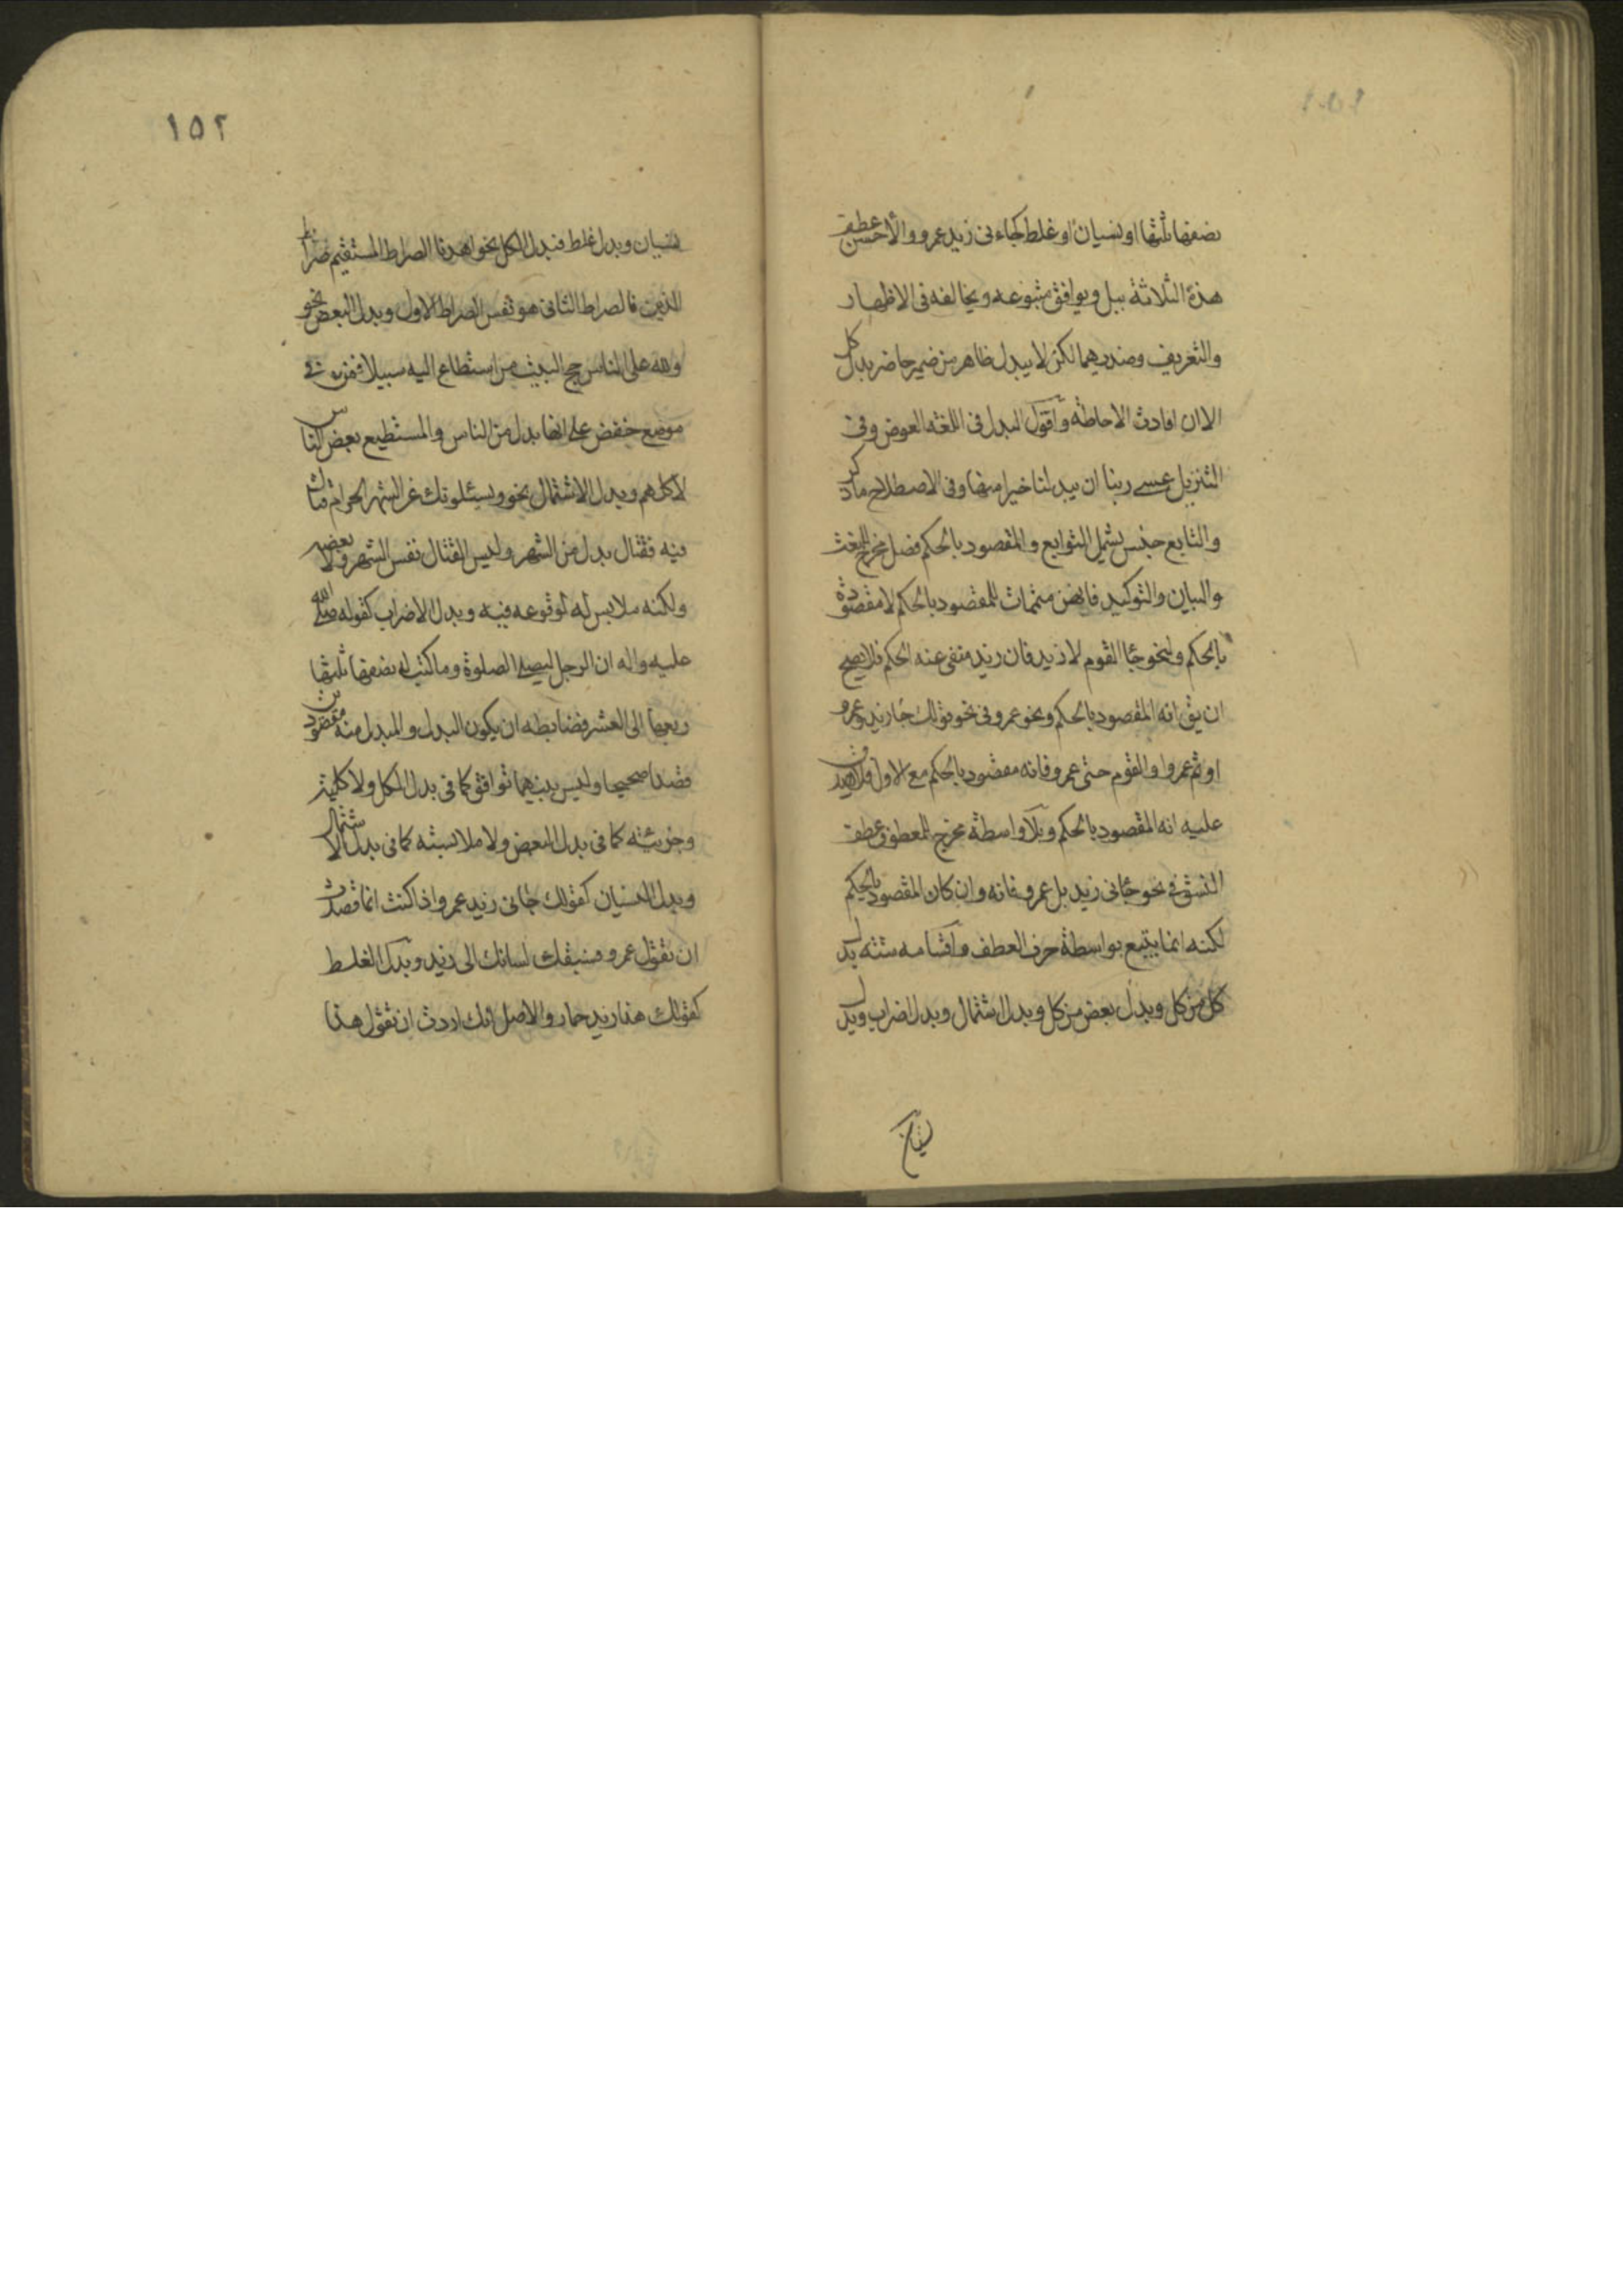 نصفها ثلثها او نسيان او غلط كجاءنى زيد عمرو والأحسن عطف
هذة الثلاثة ببل ويوافق متبوعه ويخالفه فى الاظهار
والتعريف وضديهما لكن لا يبدل ظاهر من ضمير حاضر بدل كل
الا ان افادت الاحاطة واقول البدل فى اللغة العوض وفى
التنزيل عسى ربنا ان يبدلنا خيرا منها وفى الاصطلاح ما ذكر
والتابع جنس يشمل التوابع والمقصود بالحكم فصل مخرج للنعت
والبيان والتوكيد فانهن متممات للمقصود بالحكم لا مقصودة
بالحكم ولنحو جاء القوم لا زيد فان زيد منفى عنه الحكم فلا يصح
ان يق انه المقصود بالحكم ونحو عمرو فى نحو قولك جاء زيد وعمرو
او ثم عمرو او القوم حتى عمرو فانه مقصود بالحكم مع الاول فلا يصدق
عليه انه المقصود بالحكم وبلا واسطة مخرج للمعطوف عطف
النسق فى نحو جائنى زيد بل عمرو فانه وان كان المقصود بالحكم
لكنه انما يتبع بواسطة حرف العطف واقسامه ستة بدل
كل من كل وبدل بعض من كل وبدل اشتمال وبدل اضراب وبدل
١٥٢
نسيان وبدل غلط فبدل الكل نحو اهدنا الصراط المستقيم صراط
الذين فالصراط الثانى هو نفس الصراط الاول وبدل البعض نحو
ولله على الناس حج البيت من استطاع اليه سبيلا فمن فى
موضع خفض على انها بدل من الناس والمستطيع بعض الناس
لا كلهم وبدل الاشتمال نحو ويسئلونك عن الشهر الحرام قتال
فيه فقتال بدل من الشهر وليس القتال نفس الشهر ولا بعضه
ولكنه ملابس له لوقوعه فيه وبدل الاضراب كقوله صلى الله
عليه واله ان الرجل ليصلى الصلوة وما كتب له نصفها ثلثها
ربعها الى العشر وضابطه ان يكون البدل والمبدل منه مقصودين
قصدا صحيحا وليس بينهما توافق كما فى بدل الكل ولا كلية
وجزئية كما فى بدل البعض ولا ملابسته كما فى بدل الاشتمال
وبدل النسيان كقولك جائنى زيد عمرو اذا كنت انما قصدت
ان تقول عمرو فسبقك لسانك الى زيد وبدل الغلط
كقولك هذا زيد حمار والاصل انك اردت ان تقول هذا